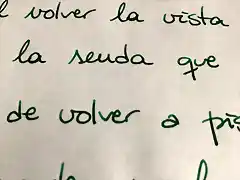 l volver la vista
la senda que
de volver a pis